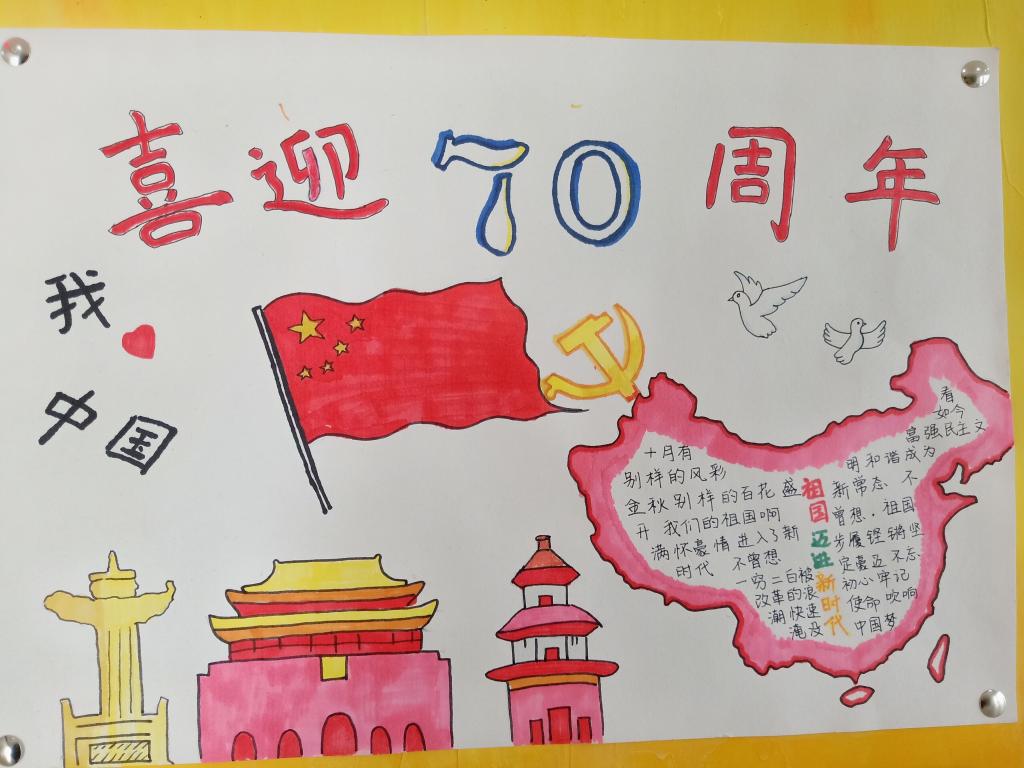 喜迎70周年
我
中国
十月有
别样的风彩
金秋别样的百花盛
开 我们的祖国啊
满怀豪情进入了新
时代 不曾想
一穷二白被
改革的浪
潮快速
淹没
祖国迈进新时代
看
如今
富强民主文
明和谐成为
新常态 不
曾想，祖国
步履铿锵坚
定豪迈不忘
初心牢记
使命吹响
中国梦